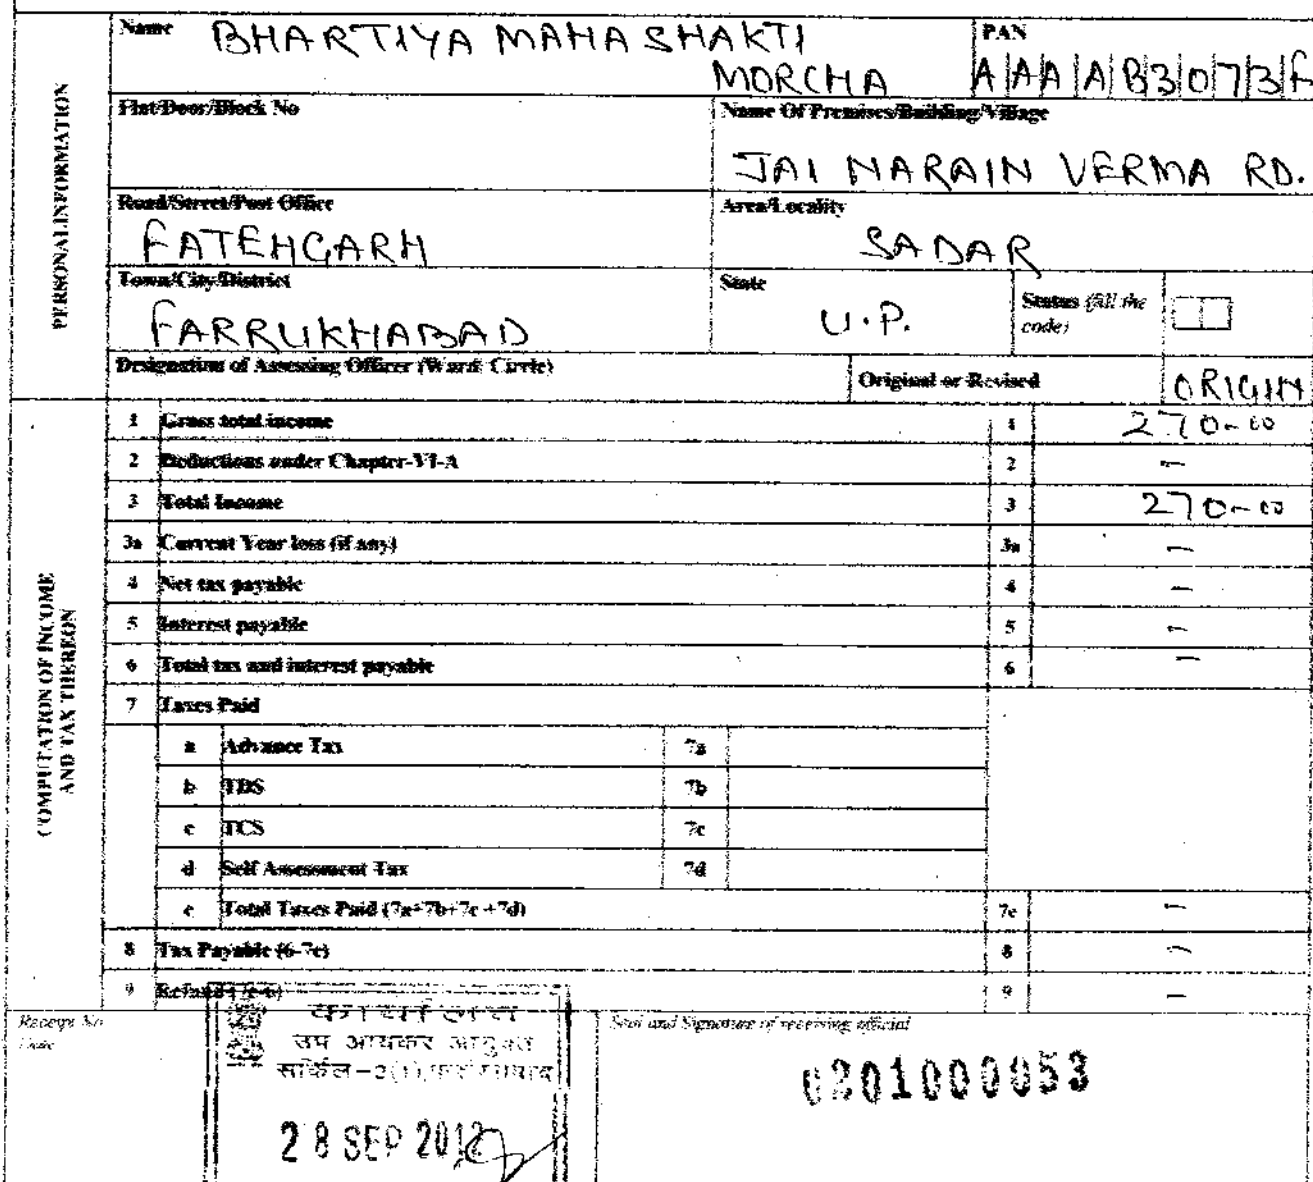 Name BHARTIYA MAHA SHAKTI
MORCHA
PAN
AAAAB3073F
Flat/Door/Block No
Name Of Premises/Building/Village
JAI NARAIN VERMA RD.
Road/Street/Post Office
FATEHGARH
Area/Locality
SADAR
Town/City/District
FARRUKHABAD
State
U.P.
Status (fill the
code)
Designation of Assessing Officer (Ward/ Circle)
Original or Revised
ORIGIN
PERSONAL INFORMATION
COMPUTATION OF INCOME
AND TAX THEREON
1 Gross total income 1 270-00
2 Deductions under Chapter-VI-A 2 -
3 Total Income 3 270-00
3a Current Year loss (if any) 3a -
4 Net tax payable 4 -
5 Interest payable 5 -
6 Total tax and interest payable 6 -
7 Taxes Paid
a Advance Tax 7a
b TDS 7b
c TCS 7c
d Self Assessment Tax 7d
e Total Taxes Paid (7a+7b+7c +7d) 7e -
8 Tax Payable (6-7e) 8 -
9 Refund (7e-6) 9 -
Receipt No
Date
कार्यालय
उप आयकर आयुक्त
सर्किल-2(1),
28 SEP 2012
Seal and Signature of receiving official
0201000053